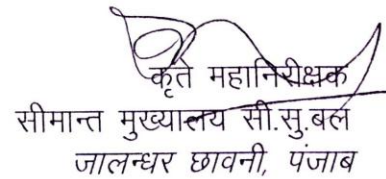 कृते महानिरीक्षक
सीमान्त मुख्यालय सी.सु.बल
जालन्धर छावनी, पंजाब